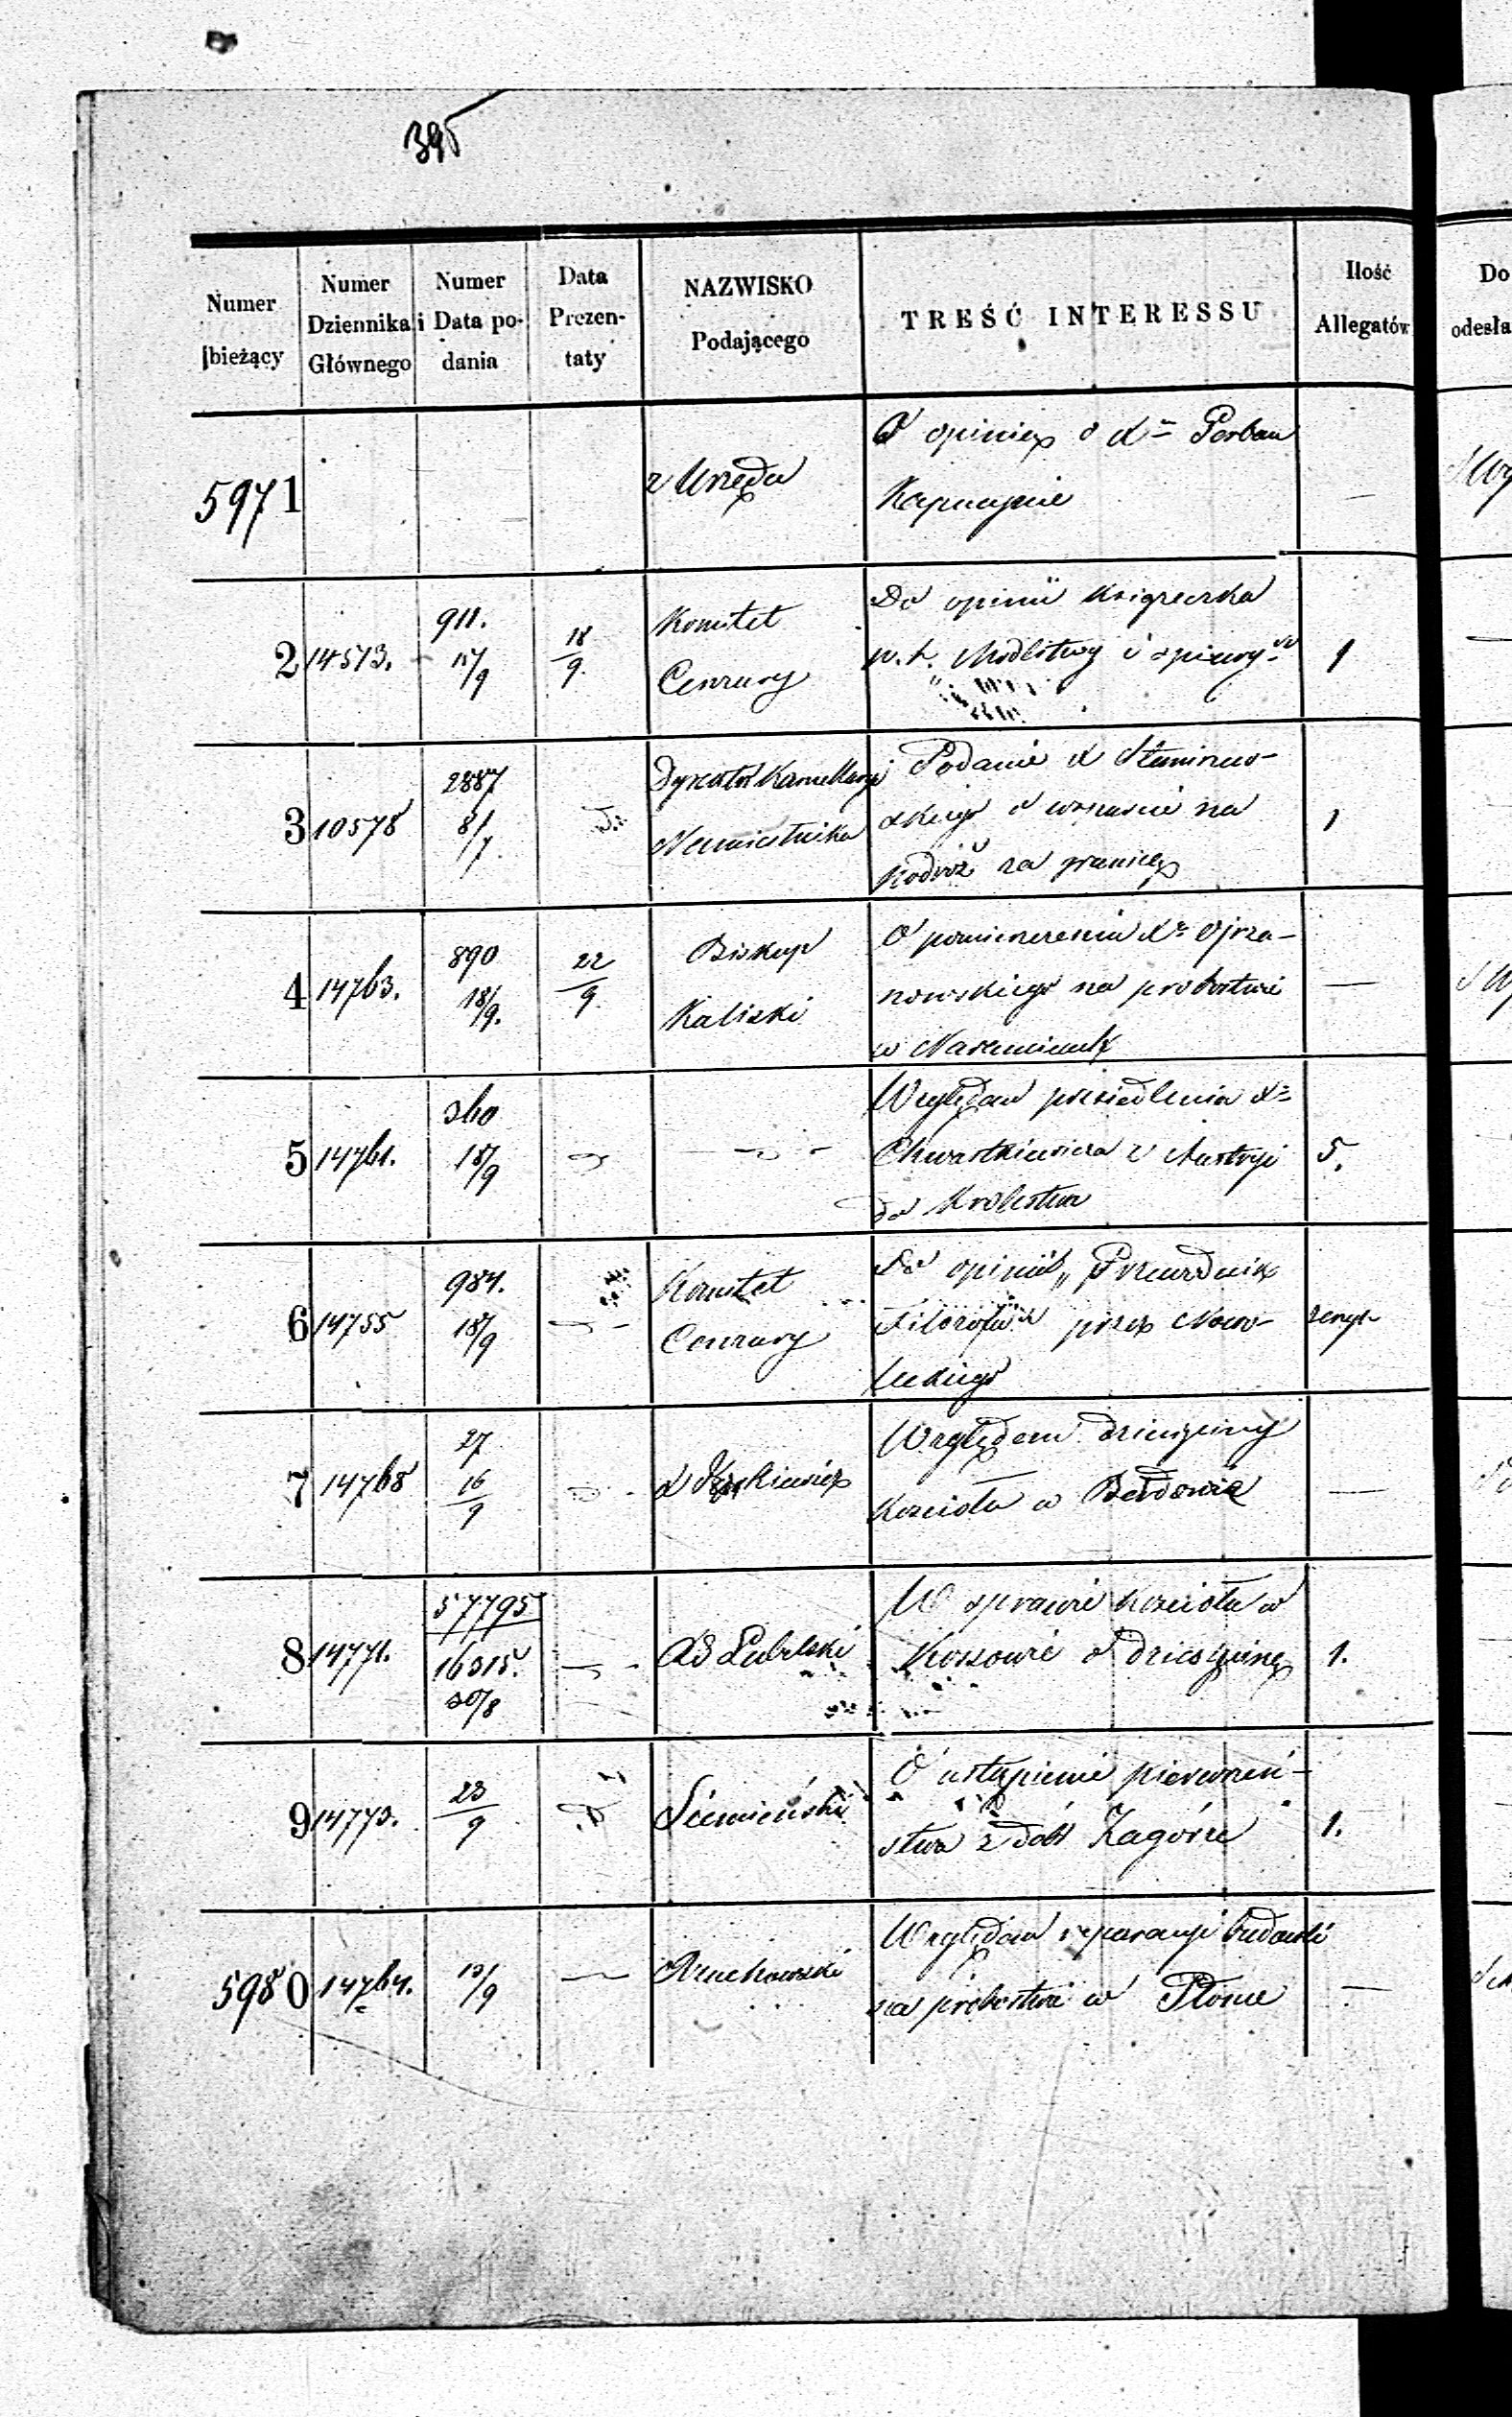 395
Numer bieżący | Numer Dziennika Głównego | Numer i Data podania | Data Prezentaty | NAZWISKO Podającego | TREŚĆ INTERESSU | Ilość Allegatów | Do odesła
5971 | z Urzędu | O opinię o X Kapucynie | —
2 | 14573. | 911. 15/9 | 18/9. | Komitet Cenzury | Do opinii książeczka p. t. Modlitwy i śpiewy | 1
3 | 10578 | 2887 8/7 | Dyrektor Kancellaryi Namiestnika | Podanie X o wsparcie na podróż za granicę | 1
4 | 14763. | 890 18/9. | 22/9 | Biskup Kaliski | O pomieszczeniu X Ojrzanowskiego na probostwie w | —
5 | 14761. | 360 18/9 | Względem przesiedlenia X Chwastkiewicza z Austryi do Królestwa | 5.
6 | 14755 | 984. 18/9 | Komitet Cenzury | Do opinii „Przewodnik Filozofii" przez Nowoleckiego | zeszyt
7 | 14768 | 27 16/9 | X | Względem dziesięciny Kościoła w Bełdowie | —
8 | 14771. | 57795 16315. 30/8 | RG Lubelski | W sprawie kościoła w Kossowie o dziesięcinę | 1.
9 | 14773. | 23/9 | Siemieński | O ustąpienie pierwszeństwa z dóbr Zagórze | 1.
5980 | 14764. | 10/9 | — | Rzuchowski | Względem reparacyi budowli na probostwie w Płonne | —